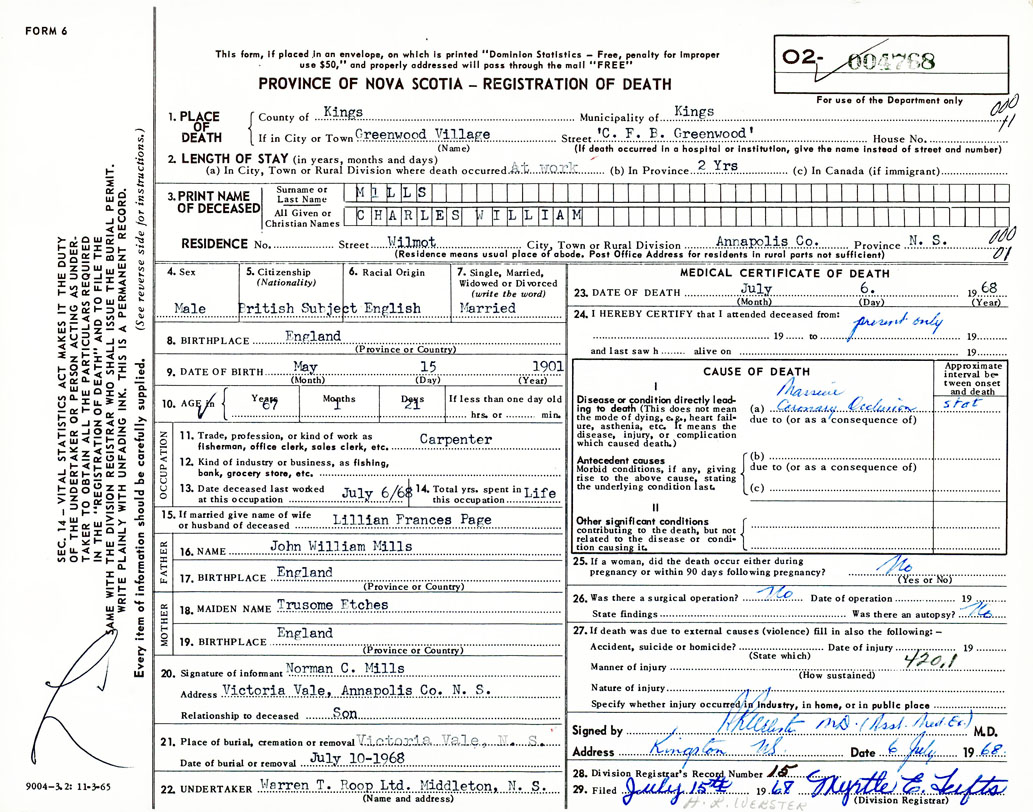 FORM 6
This form, if placed in an envelope, on which is printed "Dominion Statistics – Free, penalty for improper
use $50," and properly addressed will pass through the mail "FREE"
PROVINCE OF NOVA SCOTIA – REGISTRATION OF DEATH
02- 004768
For use of the Department only
000
11
1. PLACE OF DEATH
County of Kings Municipality of Kings
If in City or Town Greenwood Village Street 'C. F. B. Greenwood' House No.
(Name) (If death occurred in a hospital or institution, give the name instead of street and number)
2. LENGTH OF STAY (in years, months and days)
(a) In City, Town or Rural Division where death occurred At work (b) In Province 2 Yrs (c) In Canada (if immigrant)
3. PRINT NAME OF DECEASED
Surname or Last Name MILLS
All Given or Christian Names CHARLES WILLIAM
RESIDENCE No. Street Wilmot City, Town or Rural Division Annapolis Co. Province N. S.
(Residence means usual place of abode. Post Office Address for residents in rural parts not sufficient)
000
01
4. Sex
Male
5. Citizenship
(Nationality)
British Subject
6. Racial Origin
English
7. Single, Married,
Widowed or Divorced
(write the word)
Married
8. BIRTHPLACE England
(Province or Country)
9. DATE OF BIRTH May 15 1901
(Month) (Day) (Year)
10. AGE in Years 67 Months 1 Days 21 If less than one day old
hrs. or min.
OCCUPATION
11. Trade, profession, or kind of work as
fisherman, office clerk, sales clerk, etc. Carpenter
12. Kind of industry or business, as fishing,
bank, grocery store, etc.
13. Date deceased last worked
at this occupation July 6/68
14. Total yrs. spent in
this occupation Life
15. If married give name of wife
or husband of deceased Lillian Frances Page
FATHER
16. NAME John William Mills
17. BIRTHPLACE England
(Province or Country)
MOTHER
18. MAIDEN NAME Trusome Etches
19. BIRTHPLACE England
(Province or Country)
20. Signature of informant Norman C. Mills
Address Victoria Vale, Annapolis Co. N. S.
Relationship to deceased Son
21. Place of burial, cremation or removal Victoria Vale, N. S.
Date of burial or removal July 10-1968
22. UNDERTAKER Warren T. Roop Ltd. Middleton, N. S.
(Name and address)
MEDICAL CERTIFICATE OF DEATH
23. DATE OF DEATH July 6. 1968
(Month) (Day) (Year)
24. I HEREBY CERTIFY that I attended deceased from: present only
19 to 19
and last saw h alive on 19
CAUSE OF DEATH
Approximate
interval be-
tween onset
and death
I
Disease or condition directly lead-
ing to death (This does not mean
the mode of dying, e.g., heart fail-
ure, asthenia, etc. It means the
disease, injury, or complication
which caused death.)
Massive
(a) Coronary Occlusion stat
due to (or as a consequence of)
Antecedent causes
Morbid conditions, if any, giving
rise to the above cause, stating
the underlying condition last.
(b)
due to (or as a consequence of)
(c)
II
Other significant conditions
contributing to the death, but not
related to the disease or condi-
tion causing it.
25. If a woman, did the death occur either during
pregnancy or within 90 days following pregnancy? No
(Yes or No)
26. Was there a surgical operation? No Date of operation 19
State findings Was there an autopsy? No
27. If death was due to external causes (violence) fill in also the following: –
Accident, suicide or homicide? Date of injury 19
(State which)
420.1
Manner of injury
(How sustained)
Nature of injury
Specify whether injury occurred in Industry, in home, or in public place
Signed by M.D. (Asst. Med. Ex.) M.D.
Address Kingston NS. Date 6 July 1968
28. Division Registrar's Record Number 15
29. Filed July 15th 1968 Myrtle E. Tufts
(Division Registrar)
H. R. WEBSTER
SEC. 14 – VITAL STATISTICS ACT MAKES IT THE DUTY
OF THE UNDERTAKER OR PERSON ACTING AS UNDER-
TAKER TO OBTAIN ALL THE PARTICULARS REQUIRED
IN THE "REGISTRATION OF DEATH" AND TO FILE THE
SAME WITH THE DIVISION REGISTRAR WHO SHALL ISSUE THE BURIAL PERMIT.
WRITE PLAINLY WITH UNFADING INK. THIS IS A PERMANENT RECORD.
Every item of information should be carefully supplied. (See reverse side for instructions.)
9004-3.2: 11-3-65